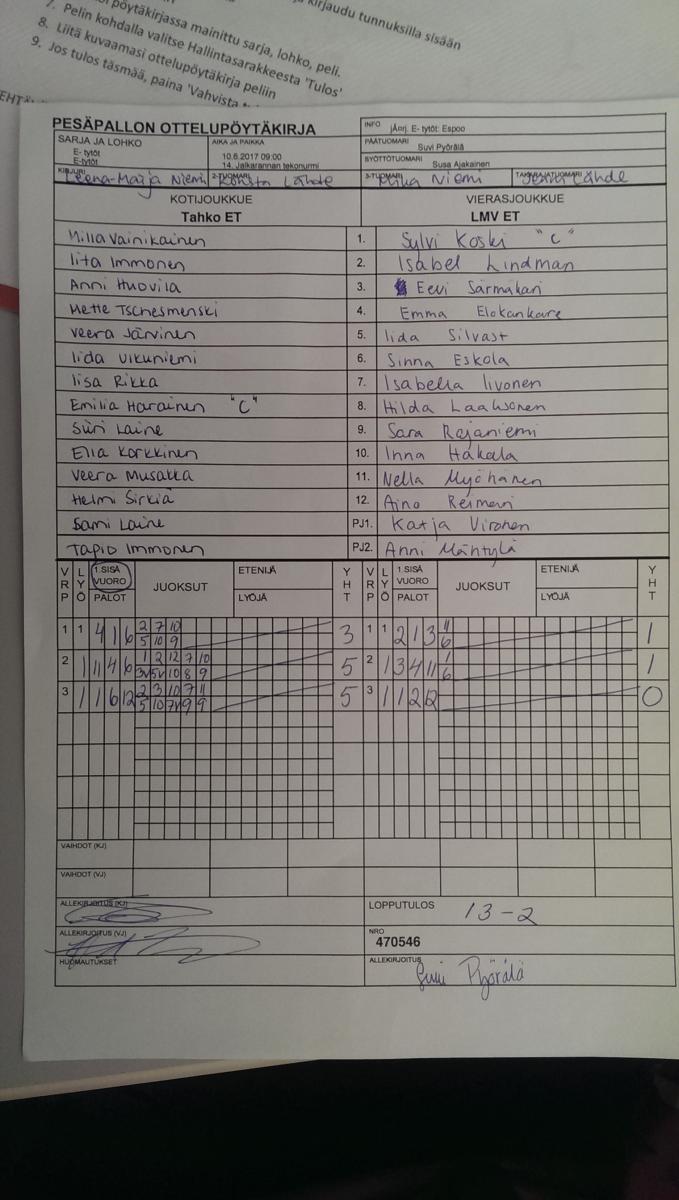 pöytäkirjassa mainittu sarja, lohko, peli.
kirjaudu tunnuksilla sisään
7. Pelin kohdalla valitse Hallintasarakkeesta 'Tulos'
8. Liitä kuvaamasi ottelupöytäkirja peliin
9. Jos tulos täsmää, paina 'Vahvista
PESÄPALLON OTTELUPÖYTÄKIRJA
INFO jÄerj. E- tytöt: Espoo
SARJA JA LOHKO AIKA JA PAIKKA PÄÄTUOMARI
E- tytöt Suvi Pyörälä
E-tytöt 10.6.2017 09:00 SYÖTTÖTUOMARI Susa Ajakainen
14. Jalkarannan tekonurmi
KIRJURI Leena-Maija Niemi 2-TUOMARI Lähde 3-TUOMARI Niemi Lähde
KOTIJOUKKUE VIERASJOUKKUE
Tahko ET LMV ET
Milla Vainikainen 1. Sylvi Koski "C"
Iita Immonen 2. Isabel Lindman
Anni Huovila 3. Eevi Särmäkari
Mette Tschesmenski 4. Emma Elokankare
Veera Järvinen 5. Iida Silvast
Iida Ulkuniemi 6. Sinna Eskola
Iisa Rikka 7. Isabella Iivonen
Emilia Harainen "C" 8. Hilda Laaksonen
Siiri Laine 9. Sara Rajaniemi
Ella Korkkinen 10. Inna Hakala
Veera Musakka 11. Nella Myöhänen
Helmi Sirkiä 12. Aino Reimavi
Sami Laine PJ1. Katja Vironen
Tapio Immonen PJ2. Anni Mäntylä
VRP LYÖ 1.SISÄ VUORO PALOT JUOKSUT ETENIJÄ LYÖJÄ YHT VRP LYÖ 1.SISÄ VUORO PALOT JUOKSUT ETENIJÄ LYÖJÄ YHT
1 1 4 1 6 2 7 10 3 1 1 2 1 3 11 1
5 10 9 6
2 1 11 4 6 1 2 12 7 10 5 2 1 3 4 11 1 1
3v 5v 10 8 9 6
3 1 1 6 12 2 3 10 7 11 5 3 1 1 2 12 0
5 10 7v 9 9
VAIHDOT (KJ)
VAIHDOT (VJ)
ALLEKIRJOITUS (KJ) LOPPUTULOS 13-2
ALLEKIRJOITUS (VJ) NRO
470546
HUOMAUTUKSET ALLEKIRJOITUS Suvi Pyörälä